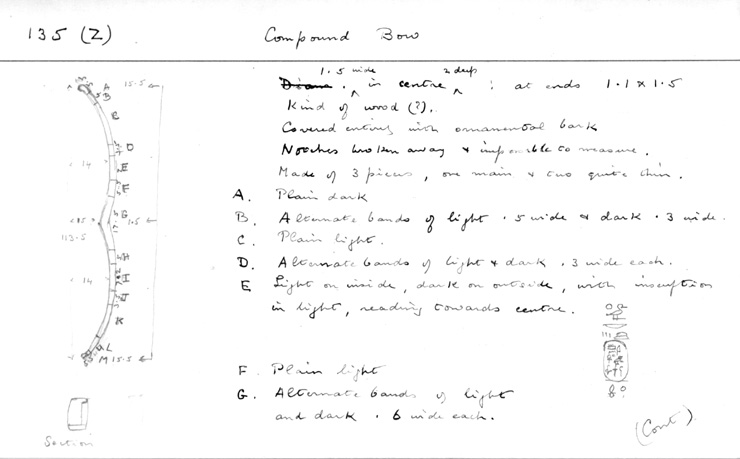 135 (Z) Compound Bow
1.5 wide 2 deep
Diam. in centre : at ends 1.1 x 1.5
Kind of wood (?).
Covered entirely with ornamental bark
Notches broken away & impossible to measure.
Made of 3 pieces, one main & two quite thin.
A. Plain dark
B. Alternate bands of light .5 wide & dark .3 wide.
C. Plain light.
D. Alternate bands of light & dark .3 wide each.
E Light on inside, dark on outside, with inscription
in light, reading towards centre.
F. Plain light
G. Alternate bands of light
and dark .6 wide each.
(Cont)
A 15.5
B
C
D
14 E
F
G
1.5
113.5
H
14 I
J
K
L
M 15.5
Section